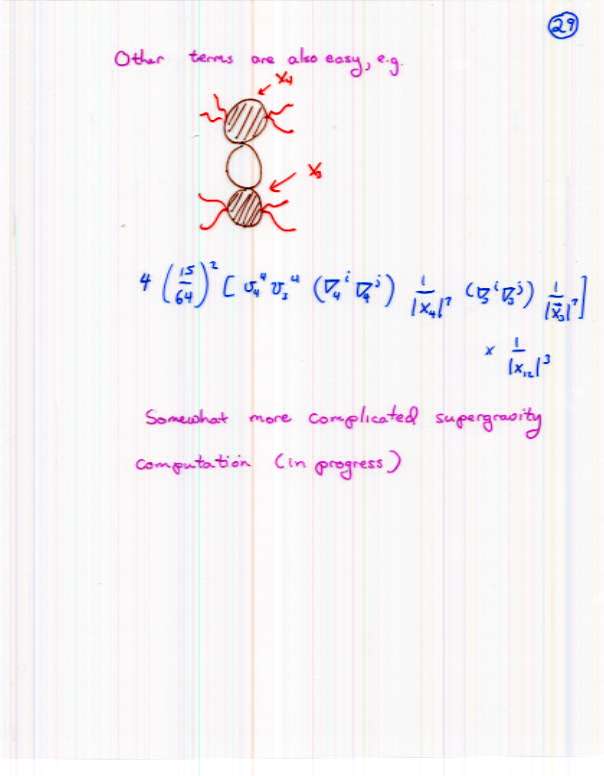 29
Other terms are also easy, e.g.
X₄
X₃
4 (15/64)² [ v₄⁴ v₃⁴ (∇₄ⁱ ∇₄ʲ) 1/|X₄|⁷ (∇₃ⁱ ∇₃ʲ) 1/|X⃗₃|⁷ ]
x 1/|x₁₂|³
Somewhat more complicated supergravity
computation (in progress)